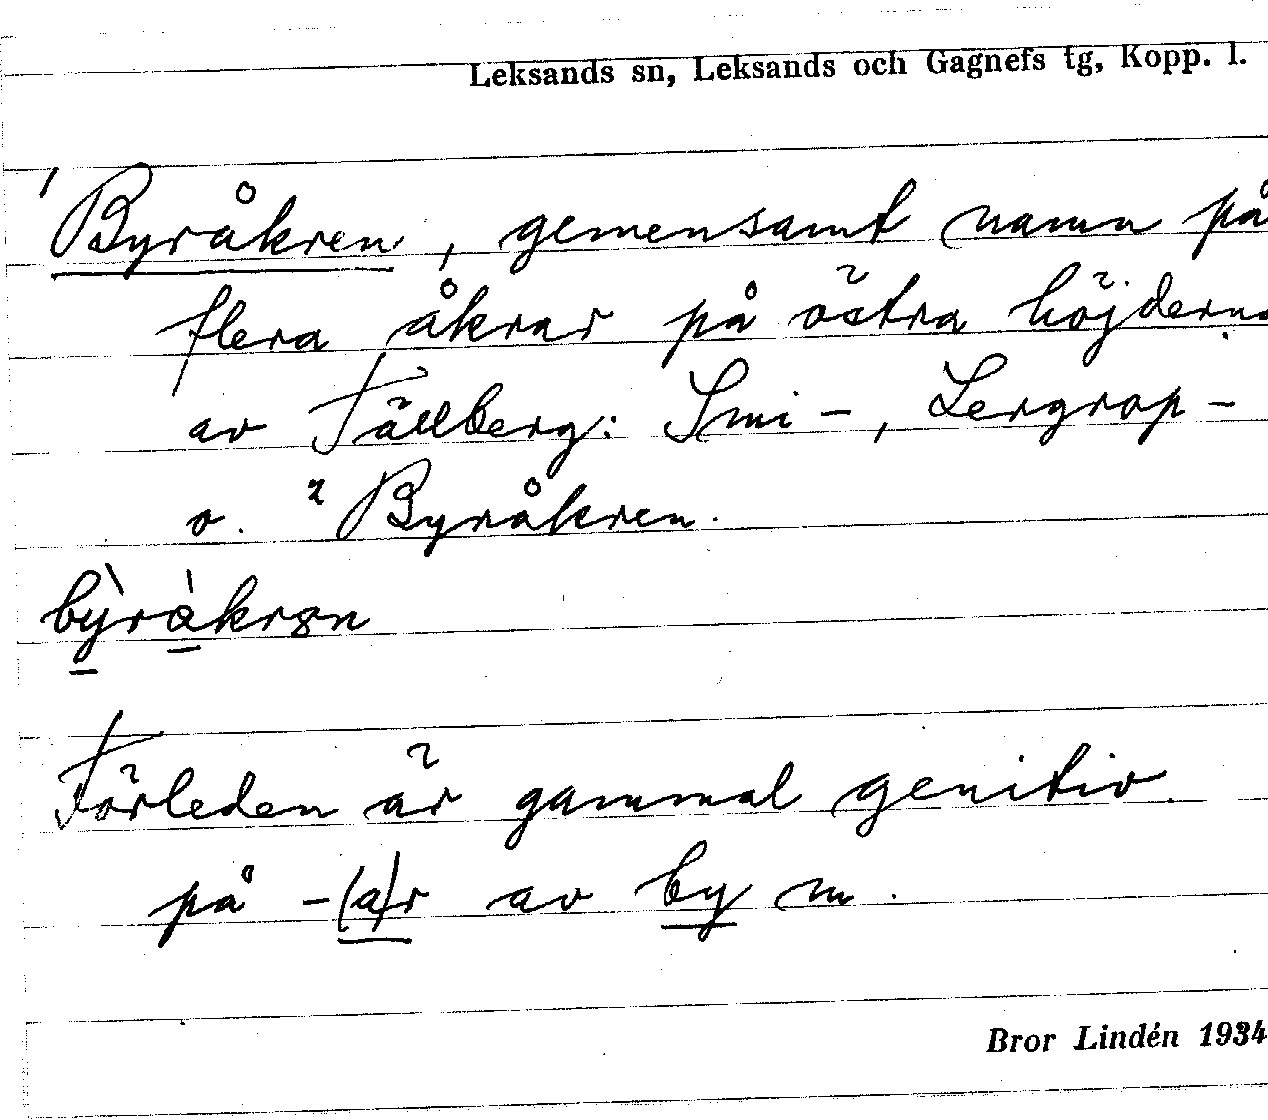 Leksands sn, Leksands och Gagnefs tg, Kopp. l.
¹Byråkren, gemensamt namn på
flera åkrar på östra höjderna
av Tällberg: Smi-, Lergrop-
o. ²Byråkren.
bỳràkrən
Förleden är gammal genitiv
på -(a)r av by m.
Bror Lindén 1934